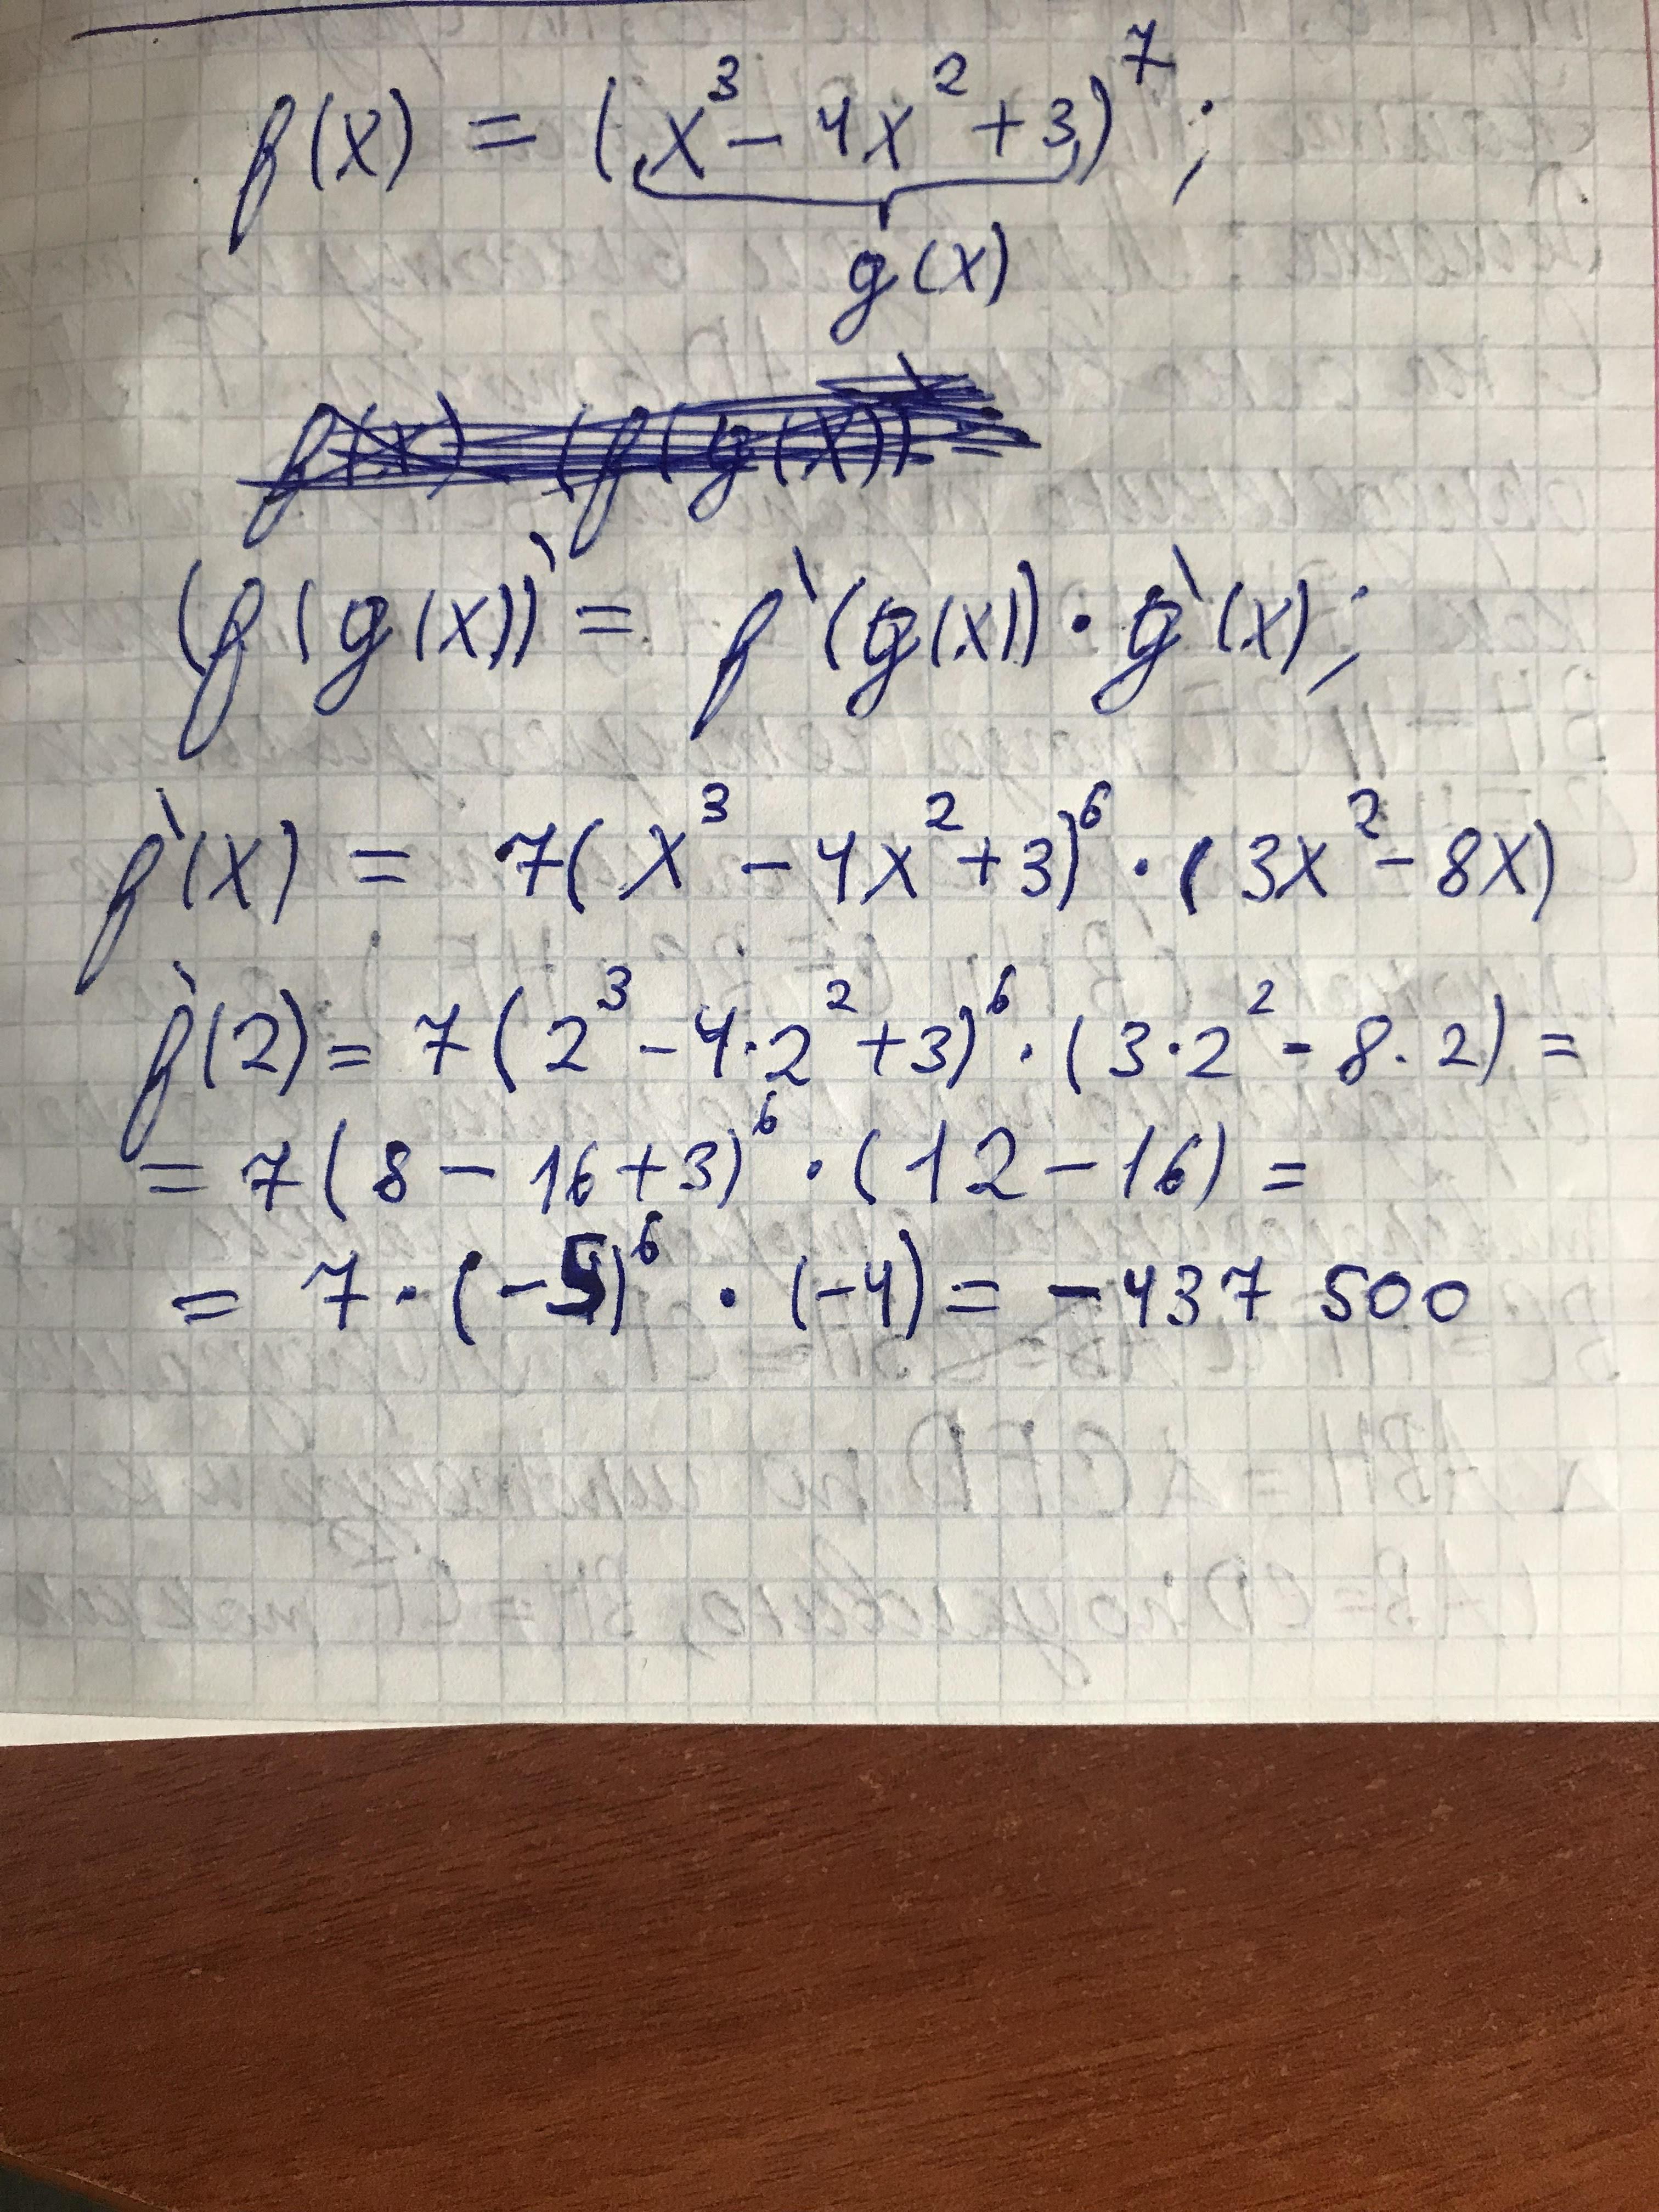 f(x) = (x³ - 4x² + 3)⁷;
g(x)
f(x) (f(g(x)) =
(f(g(x))` = f`(g(x)) · g`(x);
f`(x) = 7(x³ - 4x² + 3)⁶ · (3x² - 8x)
f`(2) = 7(2³ - 4·2² + 3)⁶ · (3·2² - 8·2) =
= 7(8 - 16 + 3)⁶ · (12 - 16) =
= 7·(-5)⁶ · (-4) = -437 500